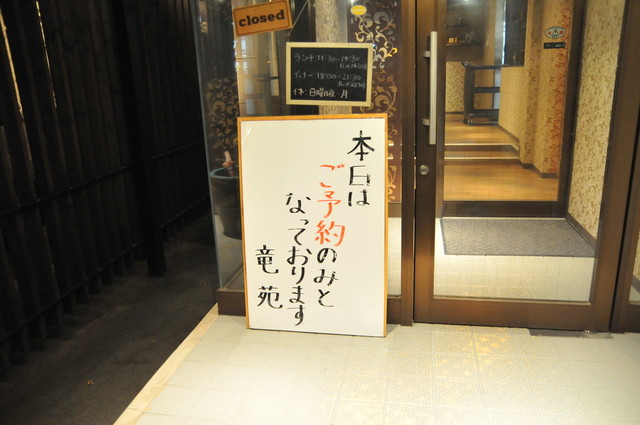 closed
ランチ 11:30~14:30
ディナー 18:00~21:30
休:日曜日・月
本日は
ご予約のみと
なっております
竜苑